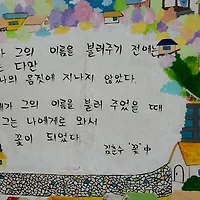 그의 이름을 불러주기 전에는
다만
몸짓에 지나지 않았다.
그의 이름을 불러 주었을 때
그는 나에게로 와서
꽃이 되었다.
김춘수 '꽃' 中